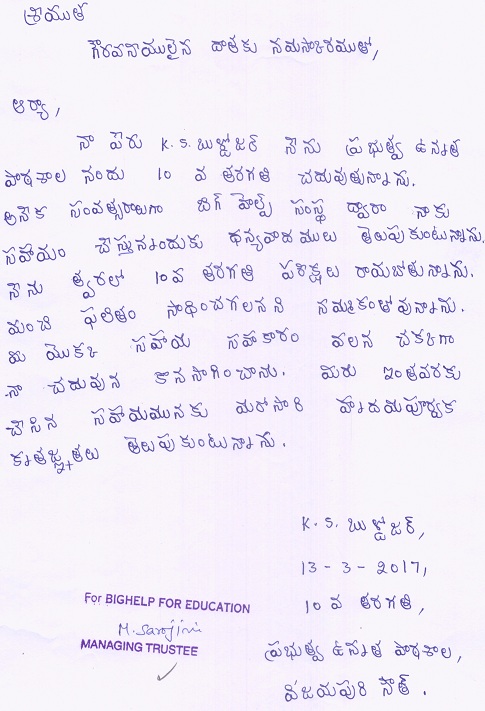 శ్రీయుత
గౌరవనీయులైన దాతకు నమస్కారములతో,
ఆర్యా,
నా పేరు K.S. బుల్డోజర్ నేను ప్రభుత్వ ఉన్నత
పాఠశాల నందు 10 వ తరగతి చదువుతున్నాను.
అనేక సంవత్సరాలుగా బిగ్ హెల్ప్ సంస్థ ద్వారా నాకు
సహాయం చేస్తున్నందుకు ధన్యవాదములు తెలుపుకుంటున్నాను.
నేను త్వరలో 10వ తరగతి పరీక్షలు రాయబోతున్నాను.
మంచి ఫలితం సాధించగలనని నమ్మకంతోవున్నాను.
మీ యొక్క సహాయ సహకారం వలన చక్కగా
నా చదువున కొనసాగించాను. మీరు ఇంతవరకు
చేసిన సహాయమునకు మరోసారి హృదయపూర్వక
కృతజ్ఞతలు తెలుపుకుంటున్నాను.
K. S. బుల్డోజర్,
13-3-2017,
10 వ తరగతి,
ప్రభుత్వ ఉన్నత పాఠశాల,
విజయపురి సౌత్.
For BIGHELP FOR EDUCATION
M. Sarojini
MANAGING TRUSTEE